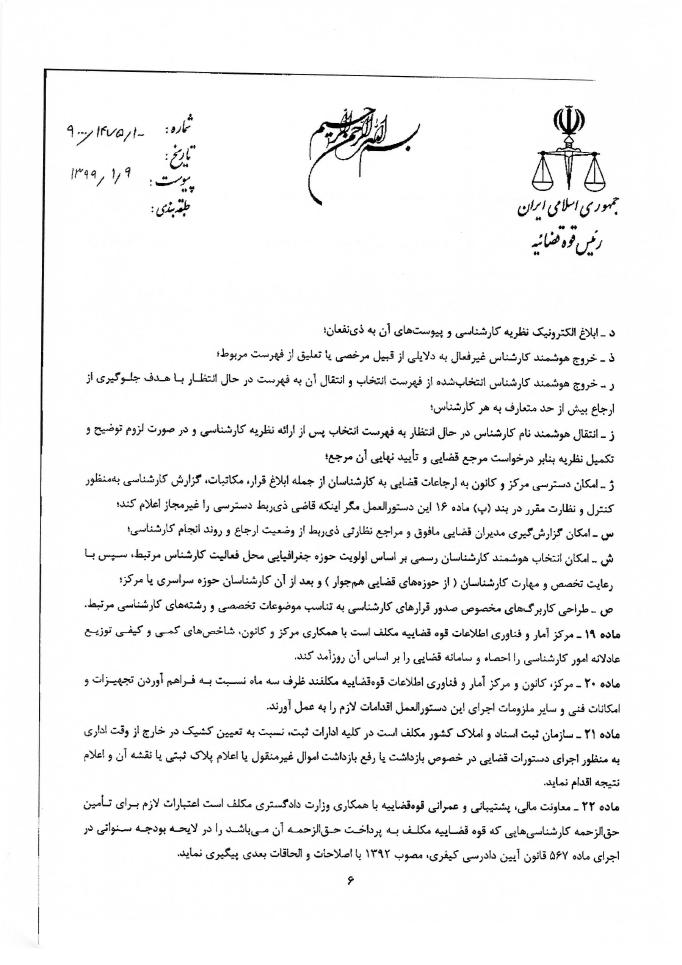 بسم الله الرحمن الرحیم
جمهوری اسلامی ایران
رئیس قوه قضائیه
شماره: ۹۰۰۰/۱۴۷۵/۱۰۰
تاریخ: ۱۳۹۹/۱/۹
پیوست:
طبقه‌بندی:
د ـ ابلاغ الکترونیک نظریه کارشناسی و پیوست‌های آن به ذی‌نفعان؛
ذ ـ خروج هوشمند کارشناس غیرفعال به دلایلی از قبیل مرخصی یا تعلیق از فهرست مربوط؛
ر ـ خروج هوشمند کارشناس انتخاب‌شده از فهرست انتخاب و انتقال آن به فهرست در حال انتظار با هدف جلوگیری از
ارجاع بیش از حد متعارف به هر کارشناس؛
ز ـ انتقال هوشمند نام کارشناس در حال انتظار به فهرست انتخاب پس از ارائه نظریه کارشناسی و در صورت لزوم توضیح و
تکمیل نظریه بنابر درخواست مرجع قضایی و تأیید نهایی آن مرجع؛
ژ ـ امکان دسترسی مرکز و کانون به ارجاعات قضایی به کارشناسان از جمله ابلاغ قرار، مکاتبات، گزارش کارشناسی به‌منظور
کنترل و نظارت مقرر در بند (پ) ماده ۱۶ این دستورالعمل مگر اینکه قاضی ذی‌ربط دسترسی را غیرمجاز اعلام کند؛
س ـ امکان گزارش‌گیری مدیران قضایی مافوق و مراجع نظارتی ذی‌ربط از وضعیت ارجاع و روند انجام کارشناسی؛
ش ـ امکان انتخاب هوشمند کارشناسان رسمی بر اساس اولویت حوزه جغرافیایی محل فعالیت کارشناس مرتبط، سپس با
رعایت تخصص و مهارت کارشناسان ( از حوزه‌های قضایی هم‌جوار ) و بعد از آن کارشناسان حوزه سراسری یا مرکز؛
ص ـ طراحی کاربرگ‌های مخصوص صدور قرارهای کارشناسی به تناسب موضوعات تخصصی و رشته‌های کارشناسی مرتبط.
ماده ۱۹ ـ مرکز آمار و فناوری اطلاعات قوه قضاییه مکلف است با همکاری مرکز و کانون، شاخص‌های کمی و کیفی توزیع
عادلانه امور کارشناسی را احصاء و سامانه قضایی را بر اساس آن روزآمد کند.
ماده ۲۰ ـ مرکز، کانون و مرکز آمار و فناوری اطلاعات قوه‌قضاییه مکلفند ظرف سه ماه نسبت به فراهم آوردن تجهیزات و
امکانات فنی و سایر ملزومات اجرای این دستورالعمل اقدامات لازم را به عمل آورند.
ماده ۲۱ ـ سازمان ثبت اسناد و املاک کشور مکلف است در کلیه ادارات ثبت، نسبت به تعیین کشیک در خارج از وقت اداری
به منظور اجرای دستورات قضایی در خصوص بازداشت یا رفع بازداشت اموال غیرمنقول یا اعلام پلاک ثبتی یا نقشه آن و اعلام
نتیجه اقدام نماید.
ماده ۲۲ ـ معاونت مالی، پشتیبانی و عمرانی قوه‌قضاییه با همکاری وزارت دادگستری مکلف است اعتبارات لازم برای تأمین
حق‌الزحمه کارشناسی‌هایی که قوه قضاییه مکلف به پرداخت حق‌الزحمه آن می‌باشد را در لایحه بودجه سنواتی در
اجرای ماده ۵۶۷ قانون آیین دادرسی کیفری، مصوب ۱۳۹۲ با اصلاحات و الحاقات بعدی پیگیری نماید.
۶